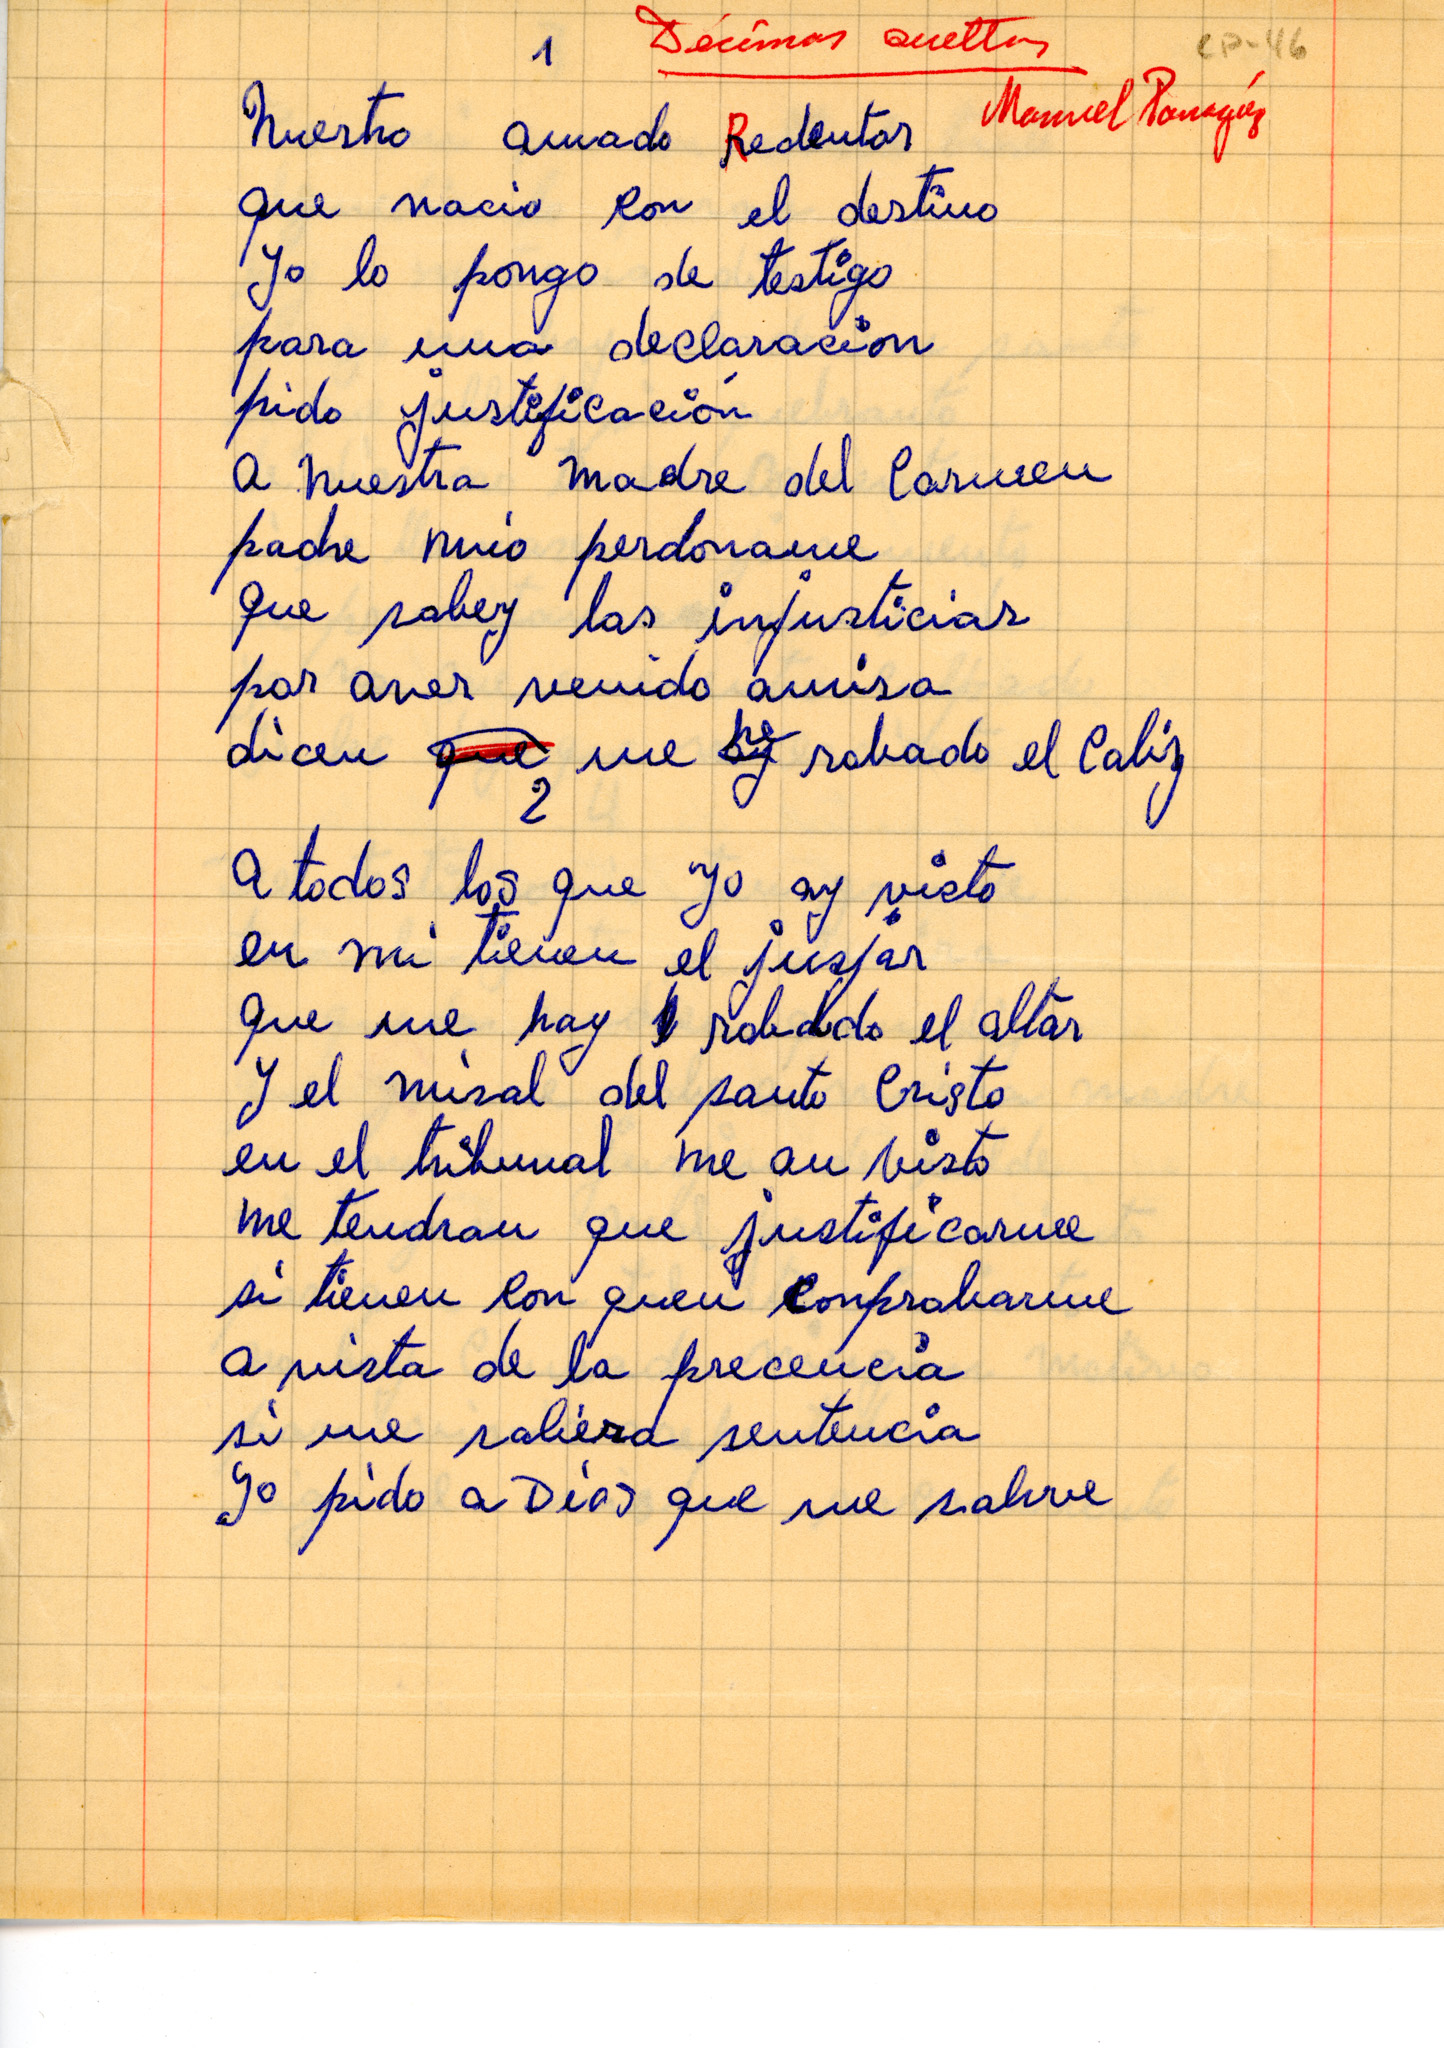 1 Décimas sueltas CP-46
Manuel
Nuestro amado Redentor
que nacio con el destino
Yo lo pongo de testigo
para una declaracion
pido justificación
a nuestra madre del Carmen
padre mio perdoname
que sabey las injusticias
por aver venido amisa
dicen que me he robado el Caliz
2
A todos los que Yo ay visto
en mi tienen el jusjar
que me hay robado el altar
Y el misal del santo Cristo
en el tribunal me an visto
me tendran que justificarme
si tienen con quen conprobarme
a vista de la precencia
si me saliera sentencia
Yo pido a Dios que me salve